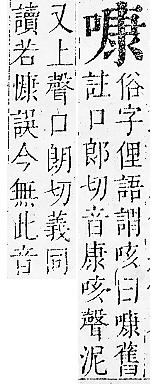 ⿰口康
俗字俚語謂咳曰⿰口康舊
註口郎切音康咳聲泥
又上聲口朗切義同
讀若慷誤今無此音